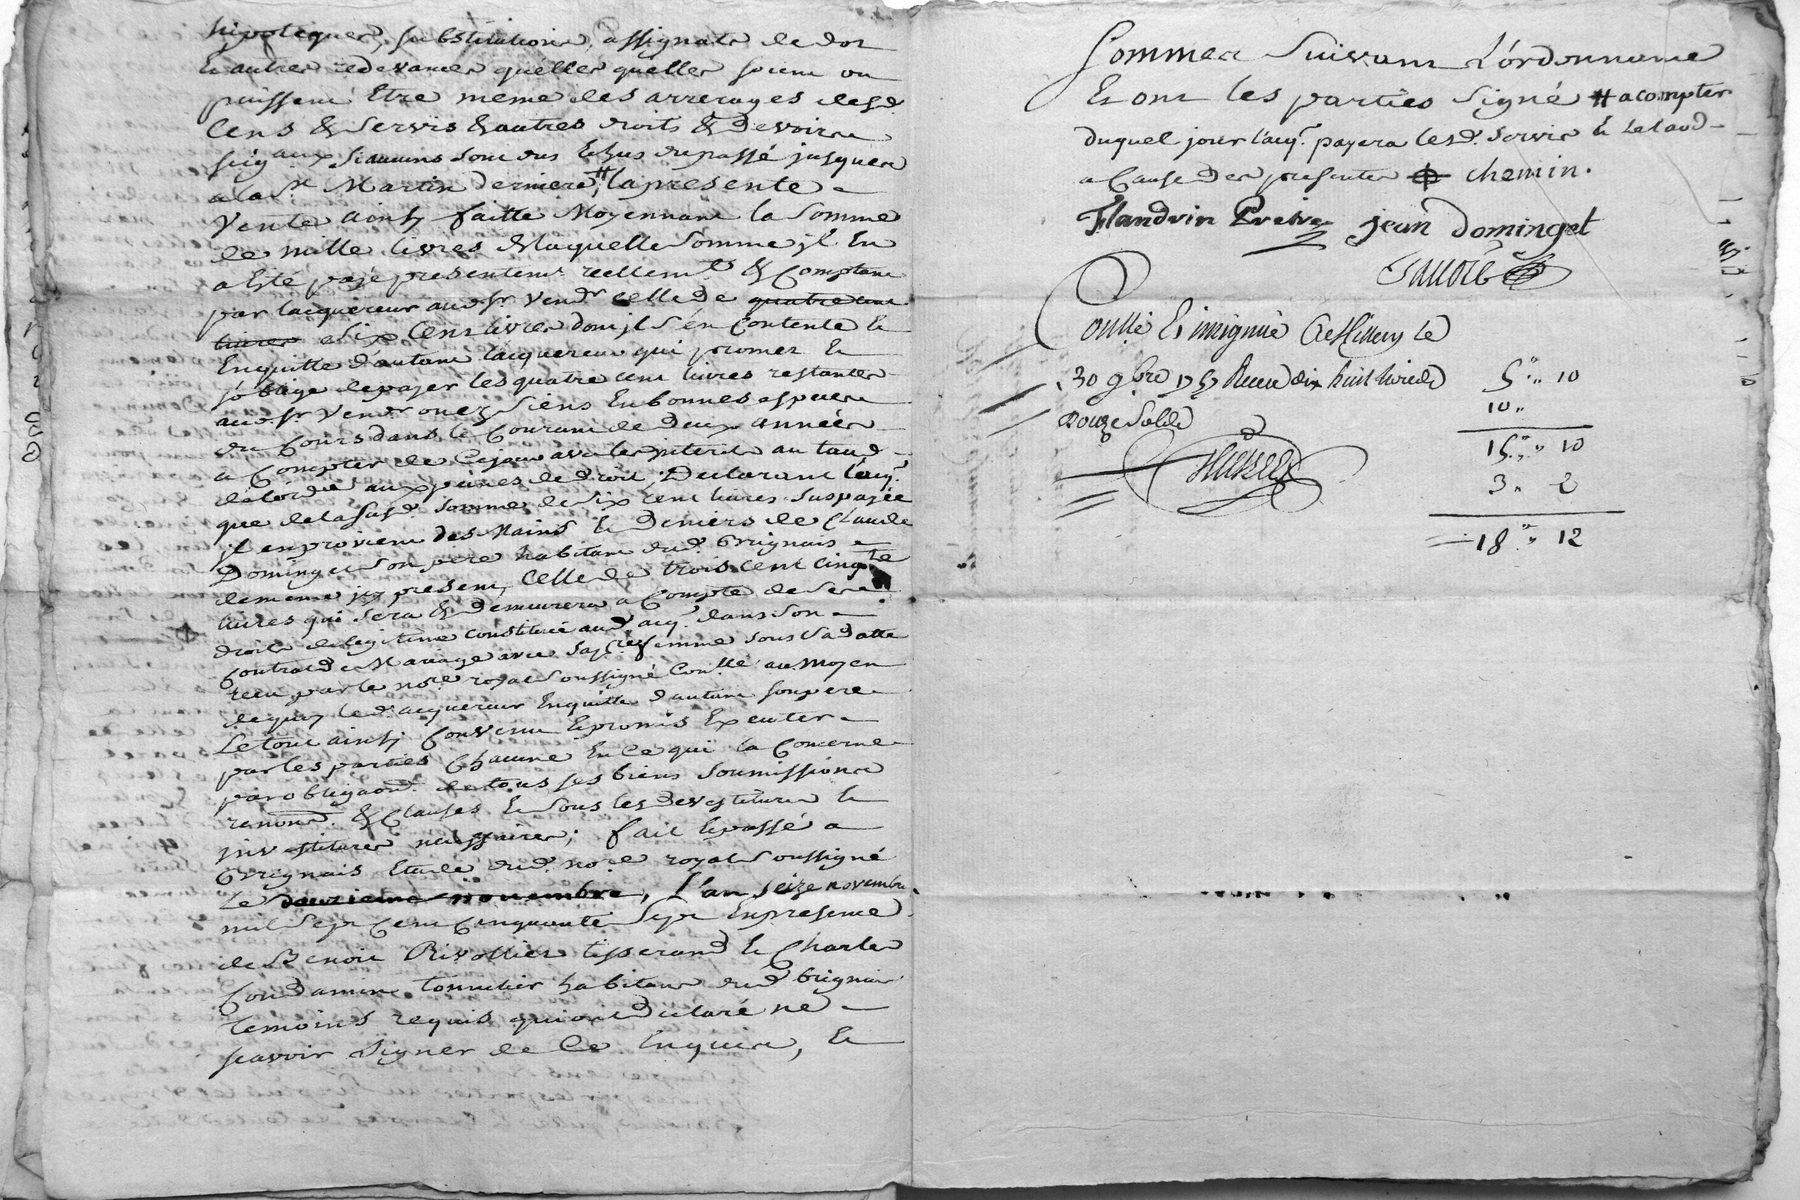 hipoteques, substitutions, assignats de dot
& autres redevances quelles quelles soient ou
puissent Etre meme des arrerages desd.
Cens & Servis & autres droits & Devoirs
seigaux Si aucuns sont dus Echus du passé jusques
a la St Martin derniere, # la presente
Vente ainsy faitte Moyennant la Somme
de mille livres de laquelle Somme jl En
a Eté payé presentemt reellemt & Comptant
par lacquereur aud. Sr Vendr celle de quatre cent
livres Six Cent livres dont jl S'en Contente &
Enquitte d'autant lacquereur qui promet &
s'oblige de payer les quatre cent livres restantes
aud. Sr Vendr ou ez Siens En bonnes especes
du Cours dans le Courant de Deux années
a Compter de Cejour avec les jnterets au taud
de lordce aux peines de Droit, Declarant l'acqr
que de la Susd. Somme de Six cent livres Suspayée
jl en provient des Mains & Deniers de Claude
Dominget Son pere habitant dud. Brignais
de meme jcy present, Celle de trois cent cinqte
livres qui Sera & Demeurera a Compte de Ses
droits de legitime constitués aud. acqr dans Son
Contrat de Mariage avec Sa femme Sous Sa datte
recu par le nore royal Soussigné Conllé au moyen
de quoy led. acquereur Enquitte d'autant Son pere
Le tout ainsy Convenu & promis Executer
par les parties Chacune En Ce qui la Concerne
par obligaon. de tous ses biens Soumissions
renoncd. & Clauses & Sous les Devestitures &
jnvestitures necessaires; fait & passé a
Brignais Etude dud. nore royal Soussigné
Le douzieme novembre, L'an Seize novembre
mil Sept Cent Cinquante Sept En presence
de Benoit Rivollier tisserand & Charles
Condamin Tonnelier habitans dud Brignais
Temoins requis qui ont Declaré ne
scavoir Signer de Ce Enquis, &
Sommes Suivant L'ordonnance
Et ont les parties Signé # a compter
duquel jour l'acqr. payera lesd. Servis & Le taud
a Cause des presentes chemin.
Flandrin Pretre jean Dominget
Conllé & insignué a le
30 9bre 1757 Receu dix huit livres
Douze Sols
5 " 10
10 "
15 " 10
3 " 2
18 " 12